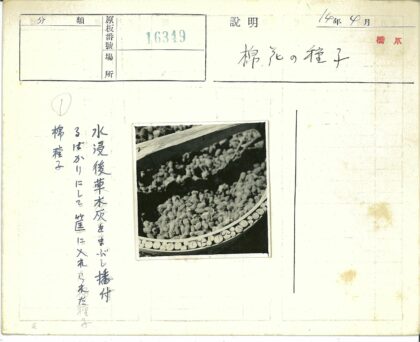 分類
原板番號
場所
16349
説明
14年4月
橋爪
棉花の種子
①
水浸後草木灰をまぶし播付
るばかりにして筐に入れられた種子
棉種子